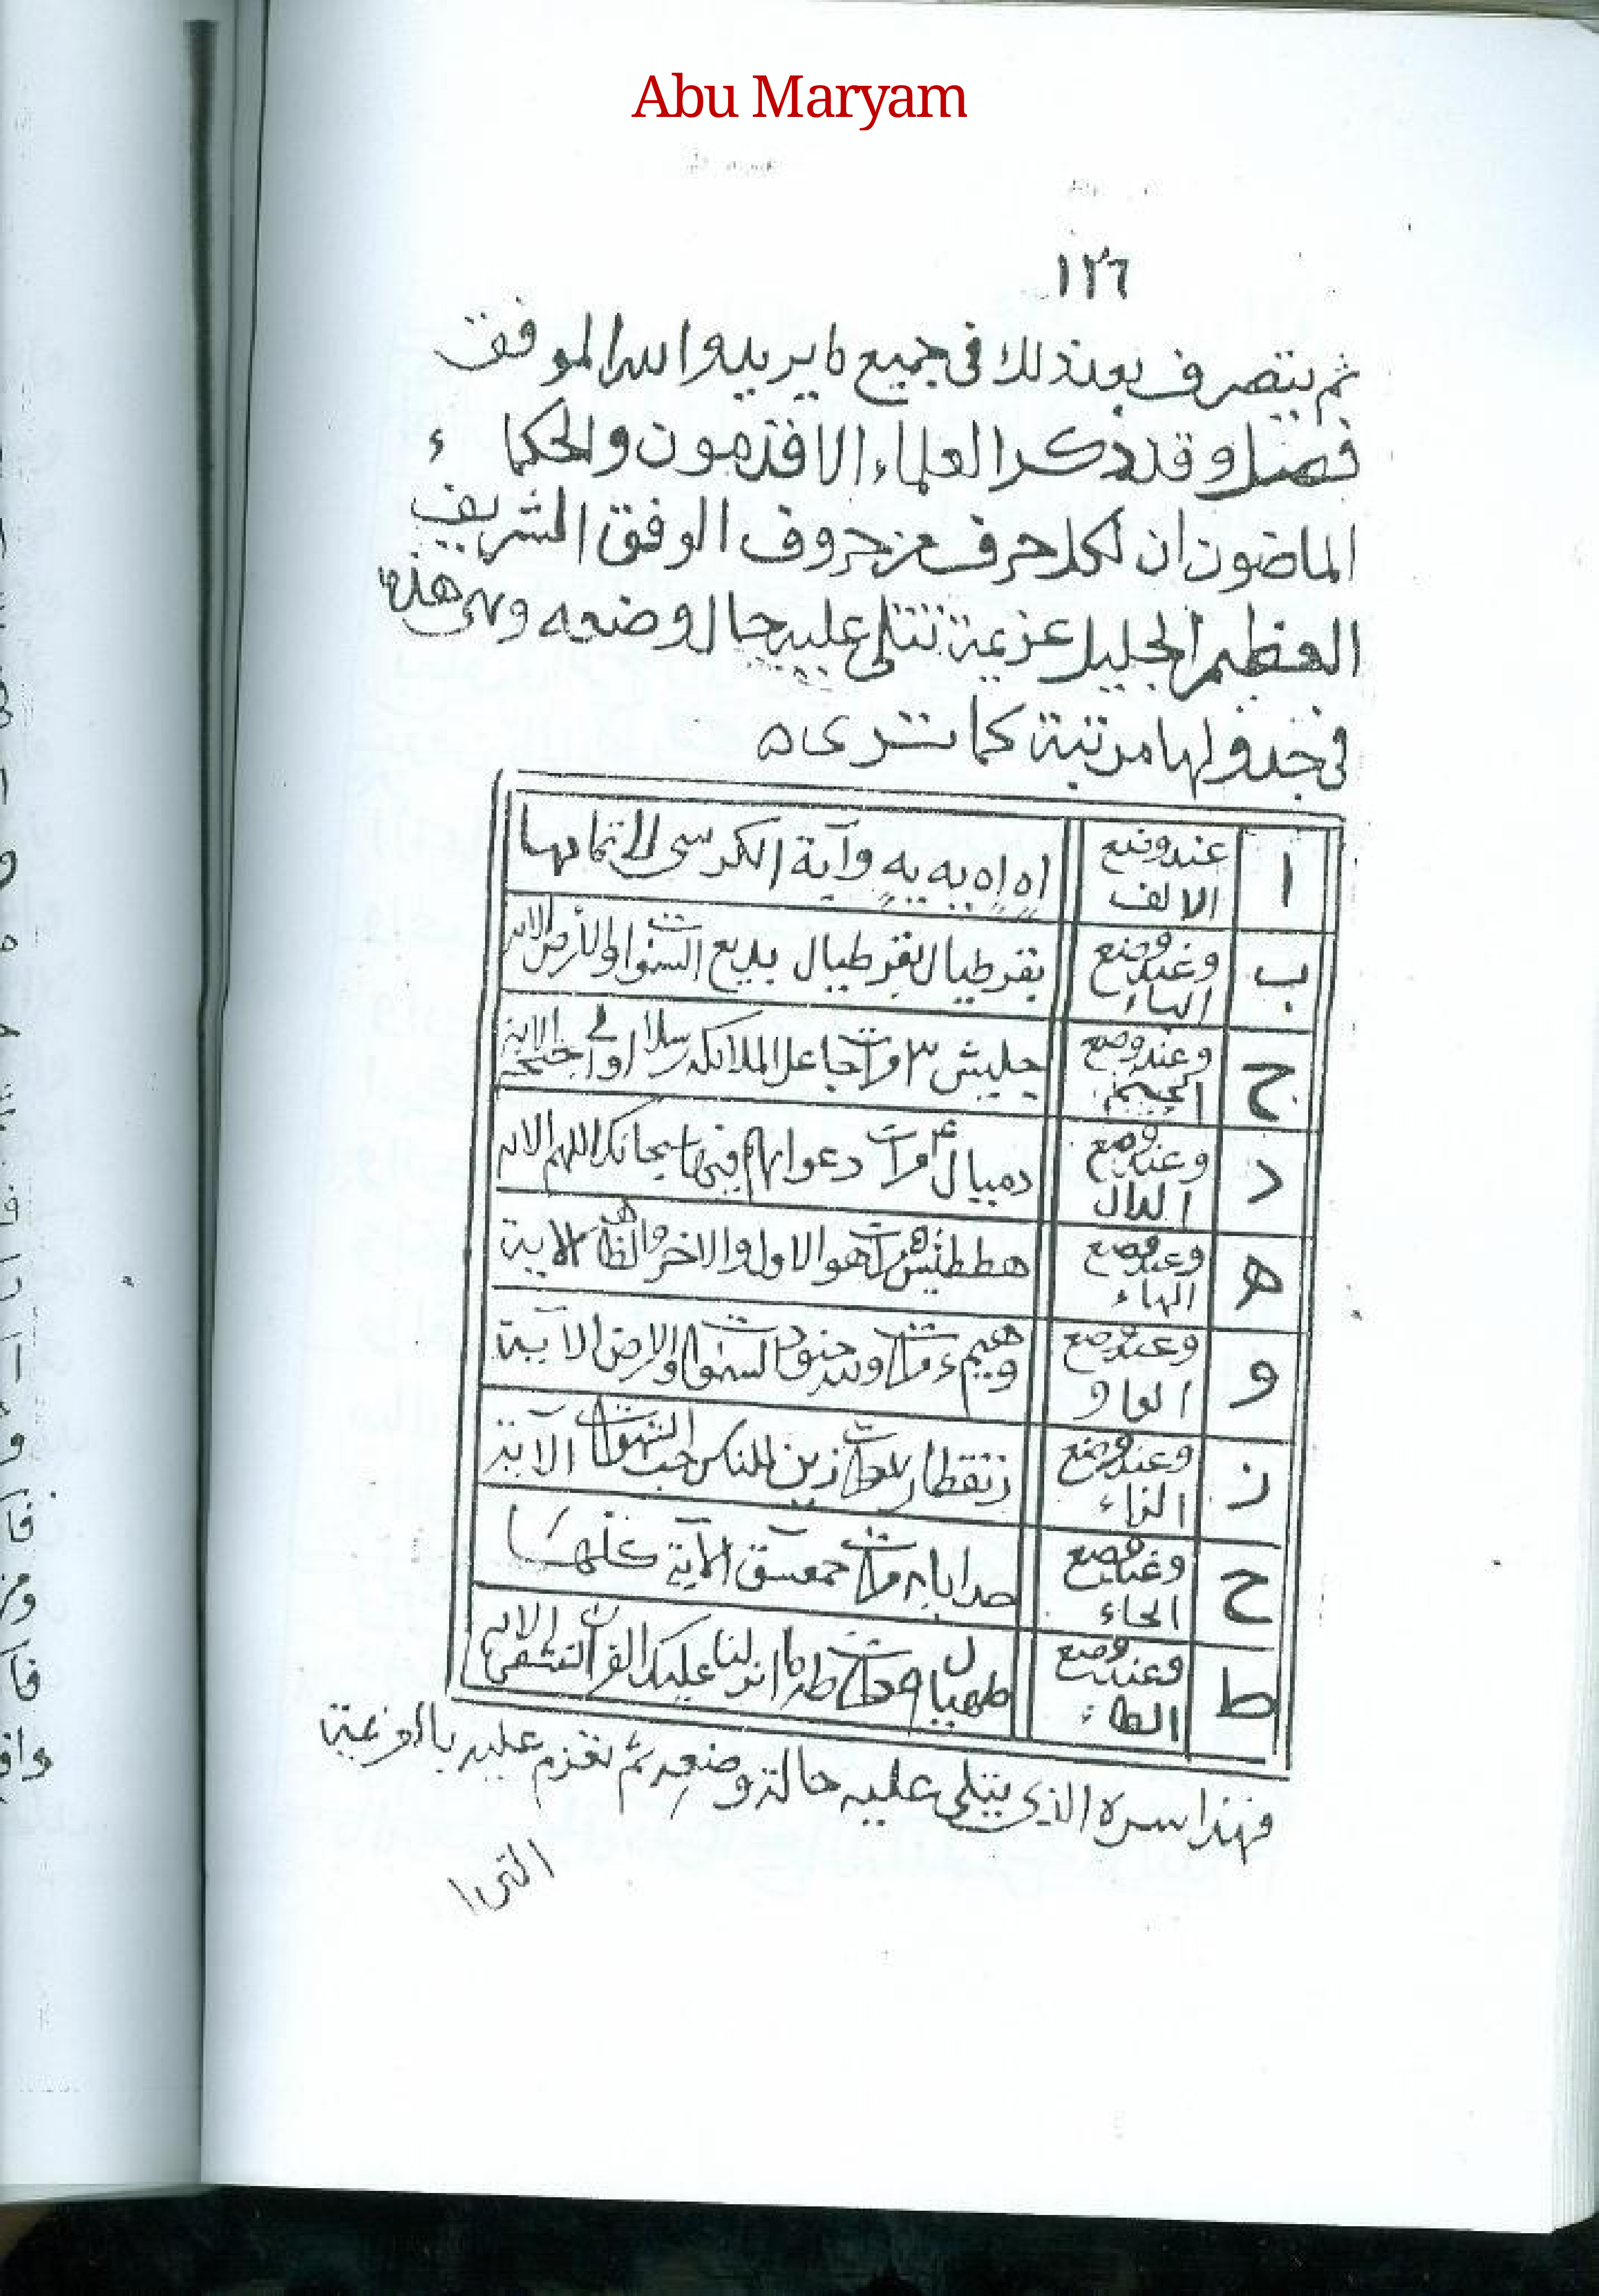 Abu Maryam
١٢٦
ثم يتصرف بعد ذلك فى جميع ما يريد والله الموفق
فصل وقد ذكر العلماء الاقدمون والحكماء
الماضون ان لكل حرف من حروف الوفق الشريف
العظيم الجليل عزيمة تتلى عليه حال وضعه وهى هذه
فى جدولها مرتبة كما ترى
ا عند وضع الالف اه اه يه يه وآية الكرسى الى تمامها
ب وعند وضع الباء بقرطيال بقرطيال بديع السموات والأرض الاية
ج وعند وضع الجيم جليش ٣ مرات جاعل الملائكة رسلا اولى اجنحة الاية
د وعند وضع الدال دميال ٤ مرات دعواهم فيها سبحانك اللهم الاية
ه وعند وضع الهاء هططيش ٥ مرات هو الاول والاخر والظاهر الاية
و وعند وضع الواو مرات ولله جنود السموات والارض الآية
ز وعند وضع الزاء زنقطا ٧ مرات زين للناس حب الشهوات الآية
ح وعند وضع الحاء مرات حمعسق الآية كلها
ط وعند وضع الطاء طهيال ٩ مرات طه ما انزلنا عليك القرآن لتشقى الاية
فهذا سره الذى يتلى عليه حالة وضعه ثم تعزم عليه بالعزيمة
التى